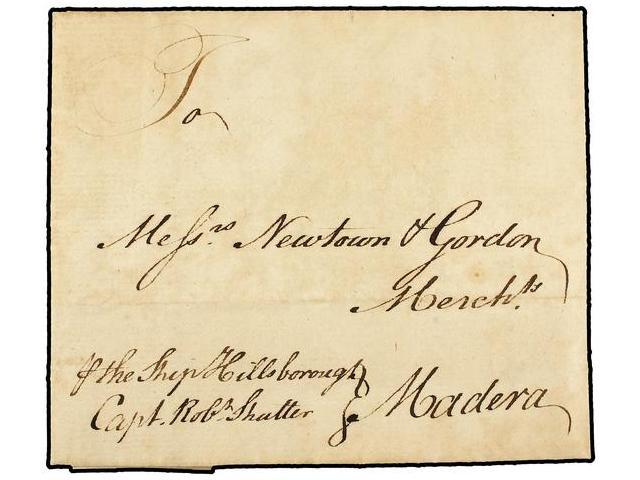 To
Messrs. Newtown & Gordon
Merchts.
⅌ the Ship Hillsborough
Capt. Robt. Shutter
Madera